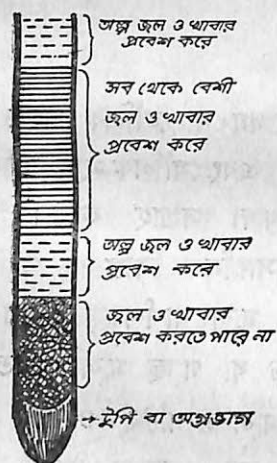 অল্প জল ও খাবার
প্রবেশ করে
সব থেকে বেশী
জল ও খাবার
প্রবেশ করে
অল্প জল ও খাবার
প্রবেশ করে
জল ও খাবার
প্রবেশ করতে পারে না
টুপি বা অগ্রভাগ